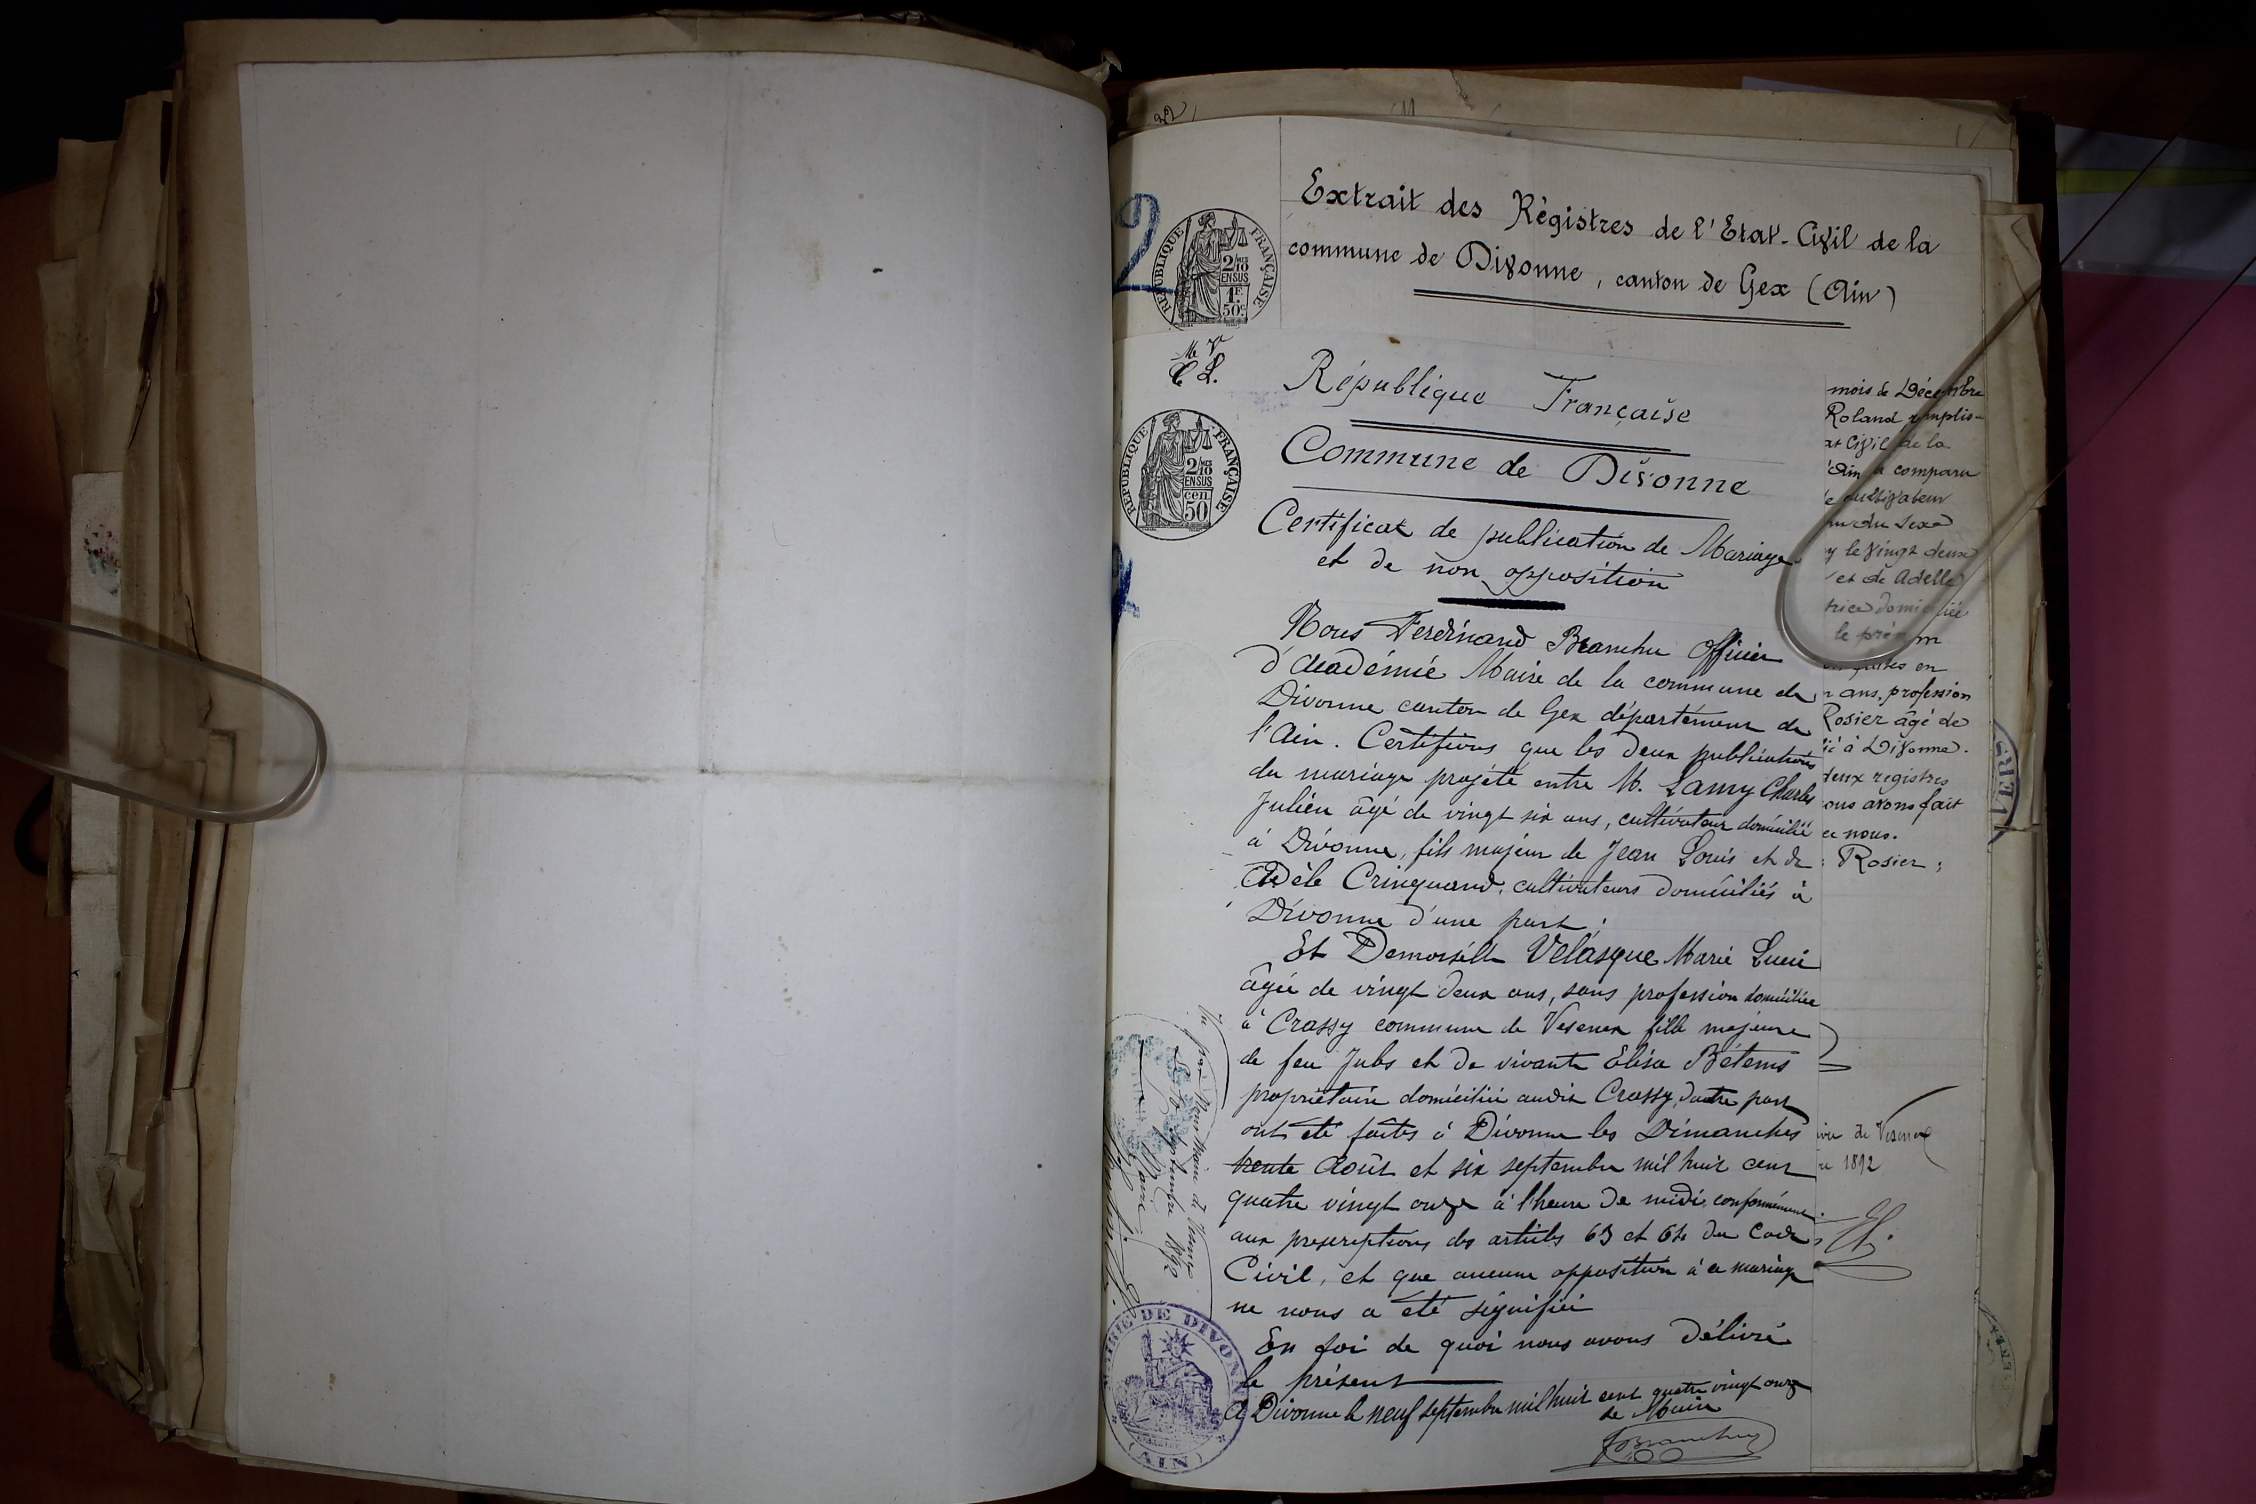 Extrait des Règistres de l'Etat-Civil de la
commune de Divonne, canton de Gex (Ain)
2
RÉPUBLIQUE FRANÇAISE
2/10 EN SUS
1F. 50c.
M V
C L.
République Française
Commune de Divonne
RÉPUBLIQUE FRANÇAISE
2/10 EN SUS
cen 50
Certificat de publication de Mariage
et de non opposition
Nous Ferdinand Branchu Officier
d'académie Maire de la commune de
Divonne canton de Gex département de
l'Ain. Certifions que les deux publications
du mariage projété entre M. Lamy Charles
Julien âgé de vingt six ans, cultivateur domicilié
à Divonne, fils majeur de Jean Louis et de
Adèle Cringuand, cultivateurs domiciliés à
Divonne d'une part;
Et Demoiselle Velasque Marie Lucie
âgée de vingt deux ans, sans profession domiciliée
à Crassy commune de Vesenex fille majeure
de feu Jules et de vivante Elisa Bétems
propriétaire domiciliée audit Crassy, d'autre part
ont été faites à Divonne les Dimanches
trente Août et six septembre mil huit cent
quatre vingt onze à l'heure de midi, conformément
aux prescriptions des articles 63 et 64 du Code
Civil, et que aucune opposition à ce mariage
ne nous a été signifiée
En foi de quoi nous avons délivré
le présent
à Divonne le neuf septembre mil huit cent quatre vingt onze
Le Maire
FBranchu
MAIRIE DE DIVONNE
(AIN)
septembre 1892
mois de Décembre
Roland remplis-
at Civil de la
l'Ain a comparu
e cultivateur
du sexe
y le vingt deux
et de Adelle
trice domiciliée
le prénom
faites en
ans, profession
Rosier âgé de
ié à Divonne.
deux registres
ous avons fait
ec nous.
Rosier;
de Vesenex
1892